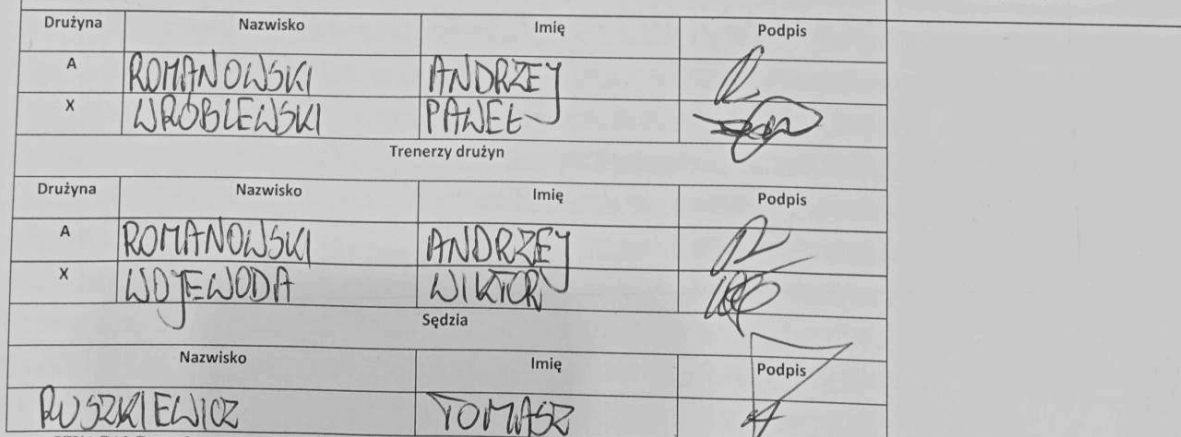 Drużyna Nazwisko Imię Podpis
A ROMANOWSKI ANDRZEJ
X WRÓBLEWSKI PAWEŁ
Trenerzy drużyn
Drużyna Nazwisko Imię Podpis
A ROMANOWSKI ANDRZEJ
X WOJEWODA WIKTOR
Sędzia
Nazwisko Imię Podpis
RUSZKIEWICZ TOMASZ